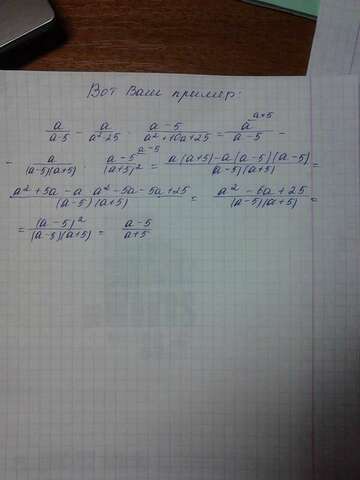 Вот Ваш пример:
a/(a-5) - a/(a²-25) · (a-5)/(a²+10a+25) = a^(a+5)/(a-5) -
- a/((a-5)(a+5)) · (a-5)^(a-5)/(a+5)² = (a(a+5)-a(a-5)(a-5))/((a-5)(a+5)) =
(a²+5a-a a²-5a-5a+25)/((a-5)(a+5)) = (a²-6a+25)/((a-5)(a+5)) =
= (a-5)²/((a-5)(a+5)) = (a-5)/(a+5)